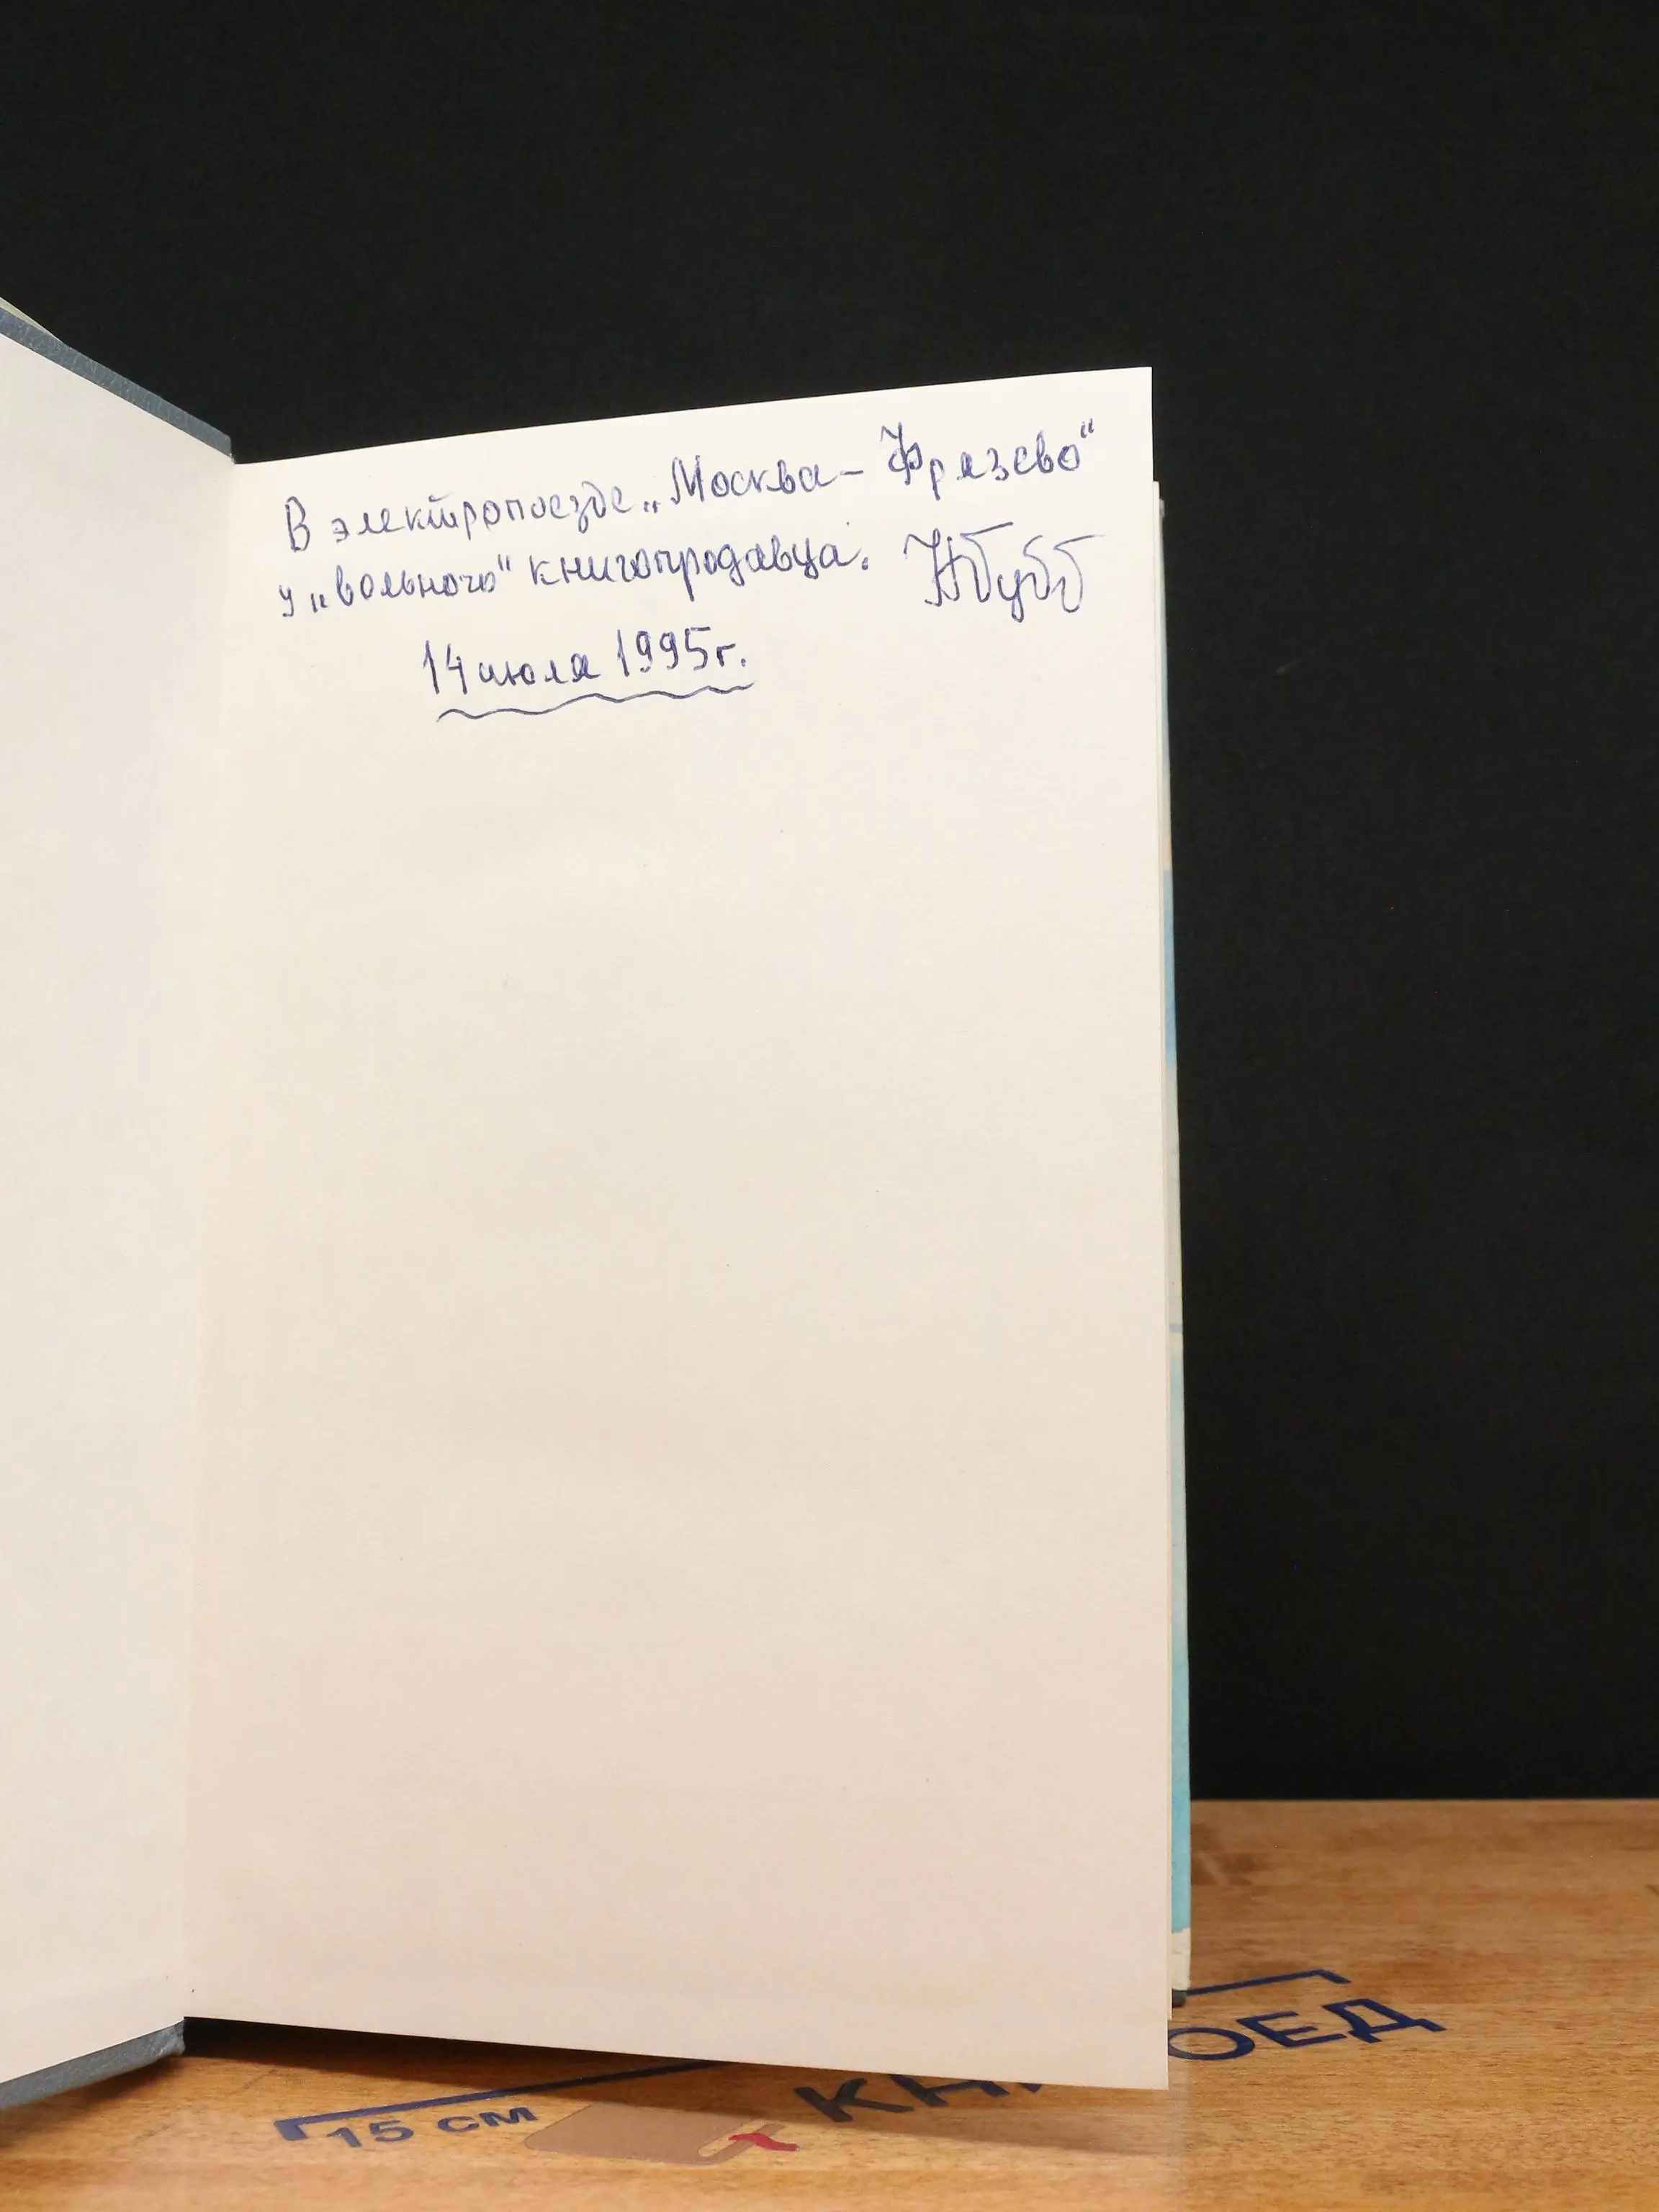 В электропоезде „Москва – Фрязево“
у „вольного“ книгопродавца.
14 июля 1995г.
15 СМ